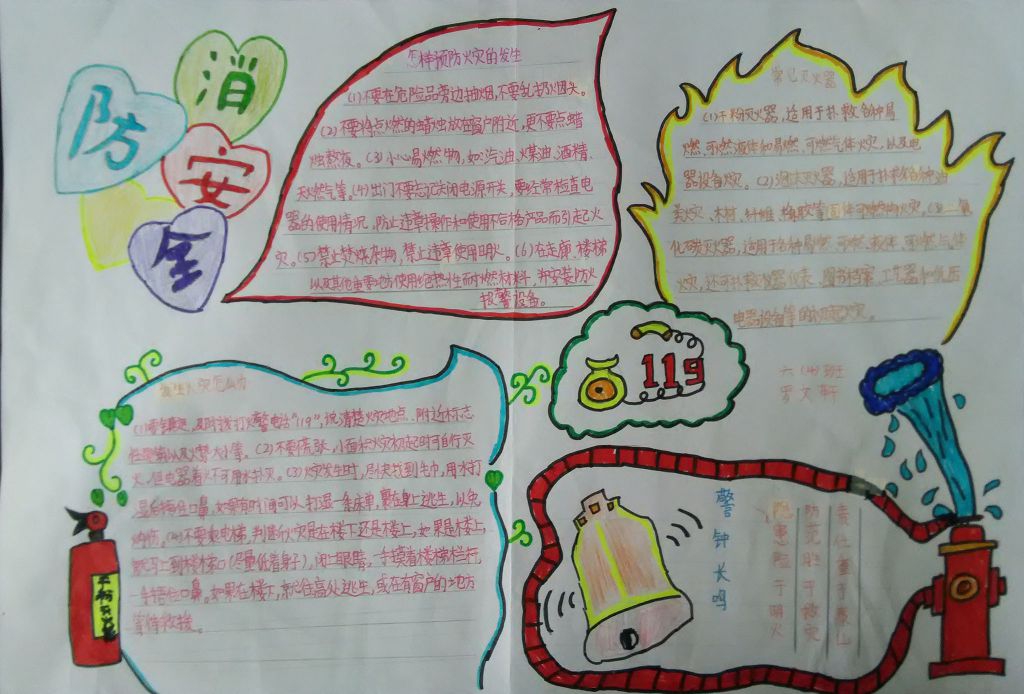 消
防
安
全
怎样预防火灾的发生
(1)不要在危险品旁边抽烟,不要乱扔烟头。
(2)不要将点燃的蜡烛放在窗户附近,更不要点蜡
烛熬夜。(3)小心易燃物,如:汽油、煤油、酒精、
天燃气等。(4)出门不要忘记关闭电源开关,要经常检查电
器的使用情况,防止违章操作和使用不合格产品而引起火
灾。(5)禁止焚烧杂物,禁止违章使用明火。(6)在走廊、楼梯
以及其他重要地方使用绝热性而耐燃材料,并安装防火
报警设备。
常见灭火器
(1)干粉灭火器,适用于扑救各种易
燃、可燃液体和易燃、可燃气体火灾,以及电
器设备火灾。(2)泡沫灭火器,适用于扑救各种油
类火灾、木材、纤维、橡胶等固体可燃物火灾。(3)二氧
化碳灭火器,适用于各种易燃、可燃液体、可燃气体
火灾,还可扑救仪器仪表、图书档案、工艺器和低压
电器设备等的初起火灾。
119
六(4)班
罗文轩
发生火灾怎么办
(1)要镇定,及时拨打火警电话"119",说清楚火灾地点、附近标志
性建筑以及火势大小等。(2)不要慌张,小面积火灾初起时可自行灭
火,但电器着火不可用水扑灭。(3)火灾发生时,尽快找到毛巾,用水打
湿后捂住口鼻,如果有时间可以打湿一条床单,裹在身上逃生,以免
灼伤。(4)不要乘电梯,判断火灾是在楼下还是楼上,如果是楼上
就马上到楼梯口(尽量低着身子),闭上眼睛,一手摸着楼梯栏杆,
一手捂住口鼻。如果在楼下,就往高处逃生,或在有窗户的地方
等待救援。
干粉灭火器
警钟长鸣
隐患险于明火
防范胜于救灾
责任重于泰山